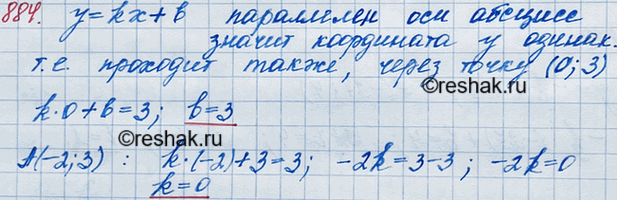 884. y=kx+b параллелен оси абсцисс
значит координата y одинак.
т.е. проходит также, через точку (0; 3)
k·0+b=3; b=3
©reshak.ru
©reshak.ru
A(-2; 3) : k·(-2)+3=3; -2k=3-3; -2k=0
k=0